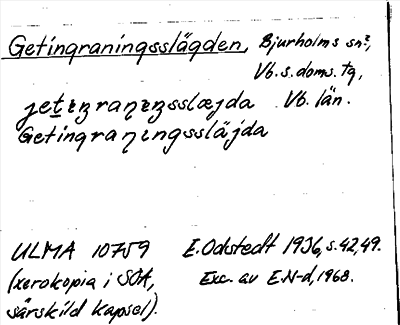 Getingraningsslägden, Bjurholms sn,
Vb. s. doms. tg,
Vb. län.
jetıŋranıŋsslæjda
Getingraningssläjda
ULMA 10759 E. Odstedt 1936, s. 42, 49.
(xerokopia i SOA, Exc. av E.N-d, 1968.
särskild kapsel).